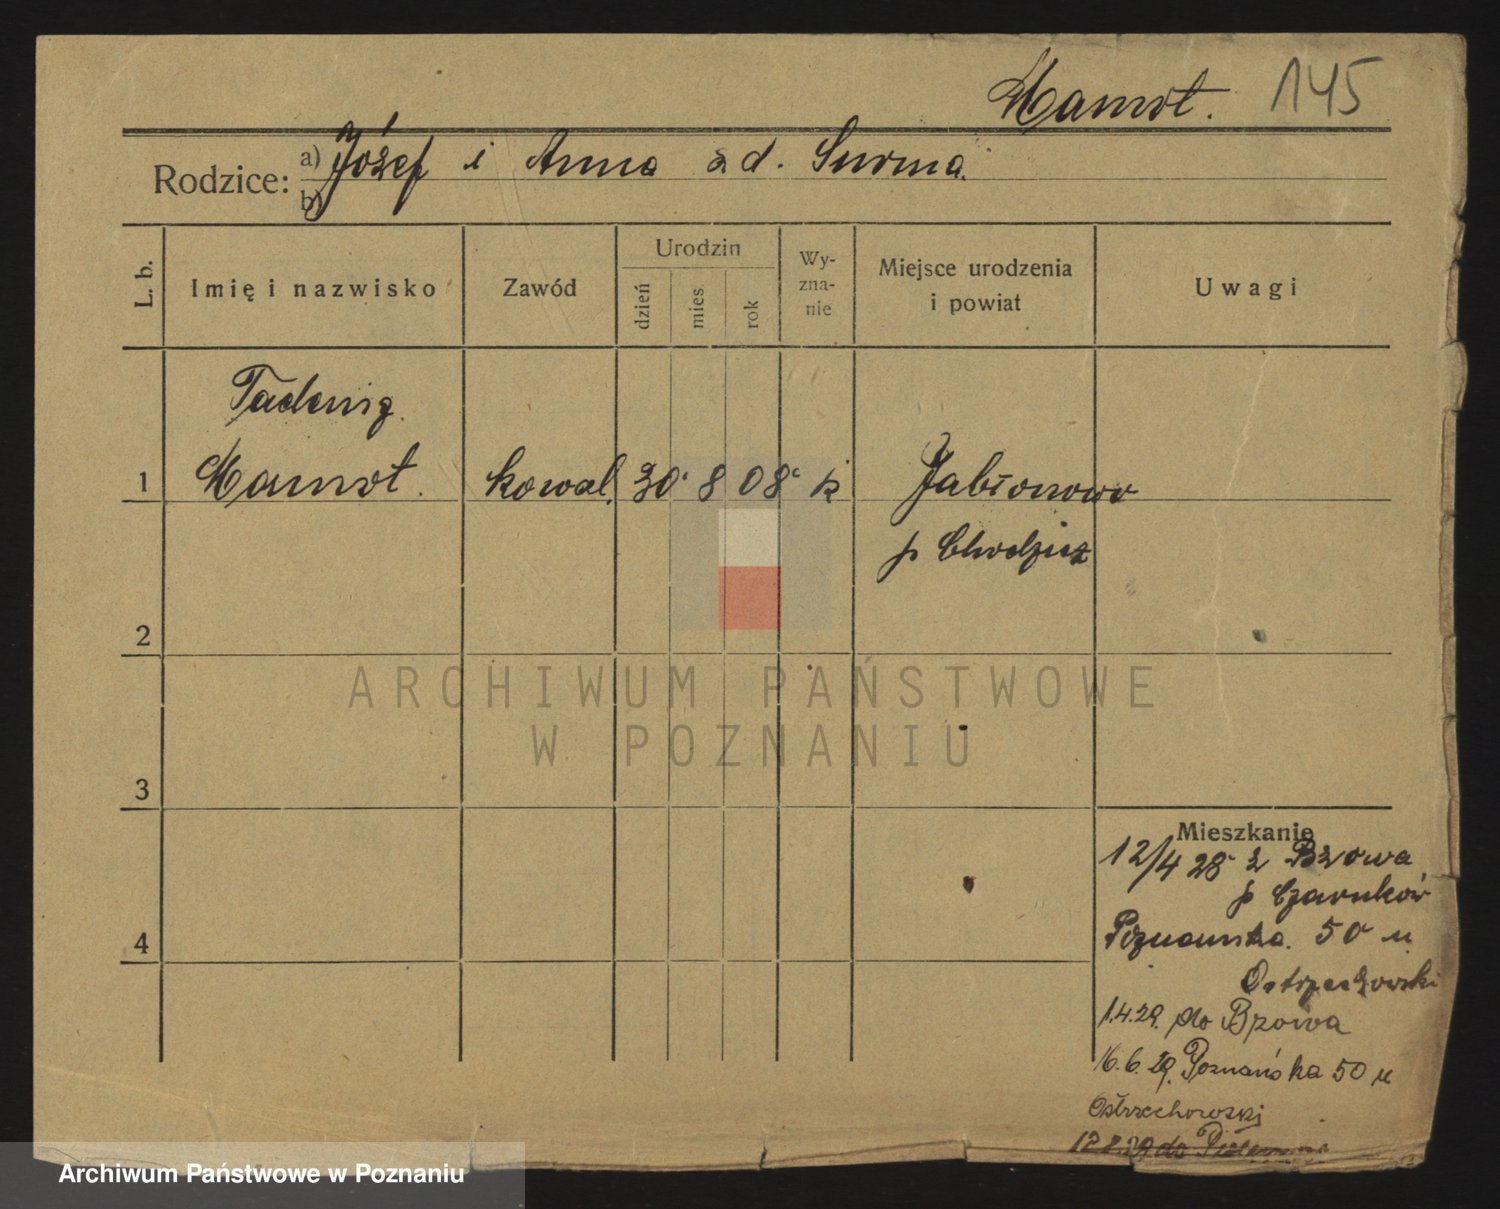 Mamot. 145
Rodzice: a) Józef i Anna zd. Surma.
b)
L. b.
Imię i nazwisko
Zawód
Urodzin
dzień
mies
rok
Wy-
zna-
nie
Miejsce urodzenia
i powiat
Uwagi
Tadeusz
1 Mamot. kowal. 30 8 08 k Jabłonowo
p Chodzież
2
ARCHIWUM PAŃSTWOWE
W POZNANIU
3
4
Mieszkanie
12/4 28 z Bzowa
p Czarnków
Poznańska 50 u
Ostrzechowski
1.4.29. do Bzowa
16.6.29. Poznańska 50 u
Ostrzechowski
do
Archiwum Państwowe w Poznaniu